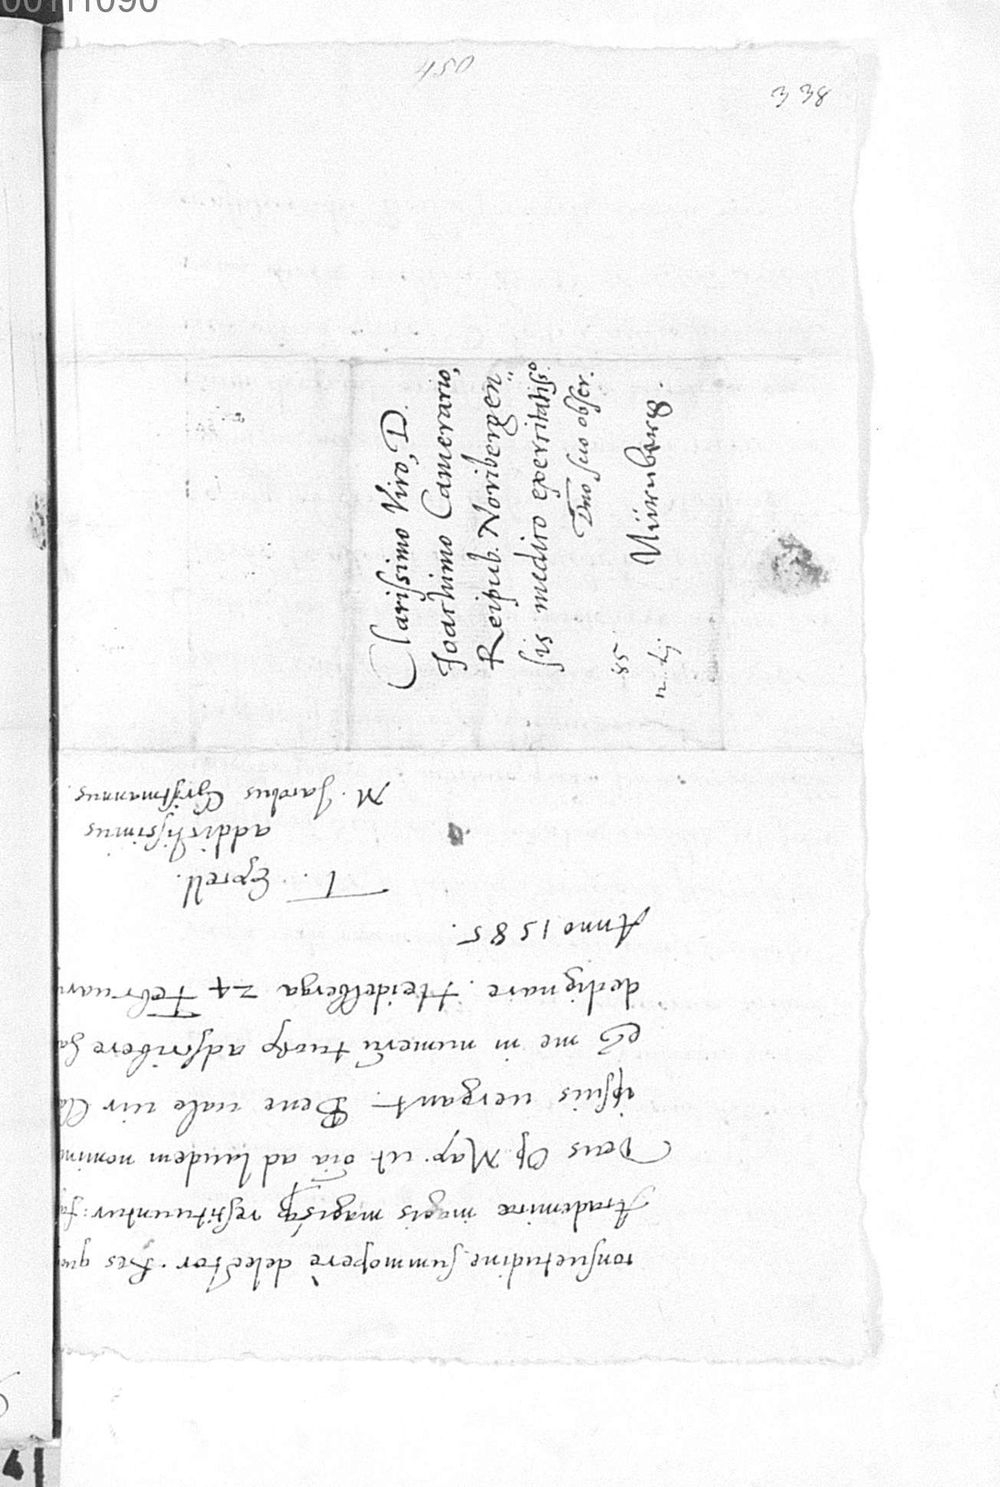 00111090
450
338
Clarissimo Viro, D.
Joachimo Camerario,
Reipub. Noribergen=
sis medico experitatiss.º
Dno suo obser.
Nürnberg.
85
consuetudine summopere delector. Res quo
Academiae magis magisq restituuntur: fa
Deus Op. Max. ut oia ad laudem nomini
ipsius uergant. Bene uale uir Cla
et me in numerū tuorū adscribere ha
dedignare. Heidelberga 24 Februarij
Anno 1585.
T. Excell.
addictissimus
M. Jacobus Christmannus.
4